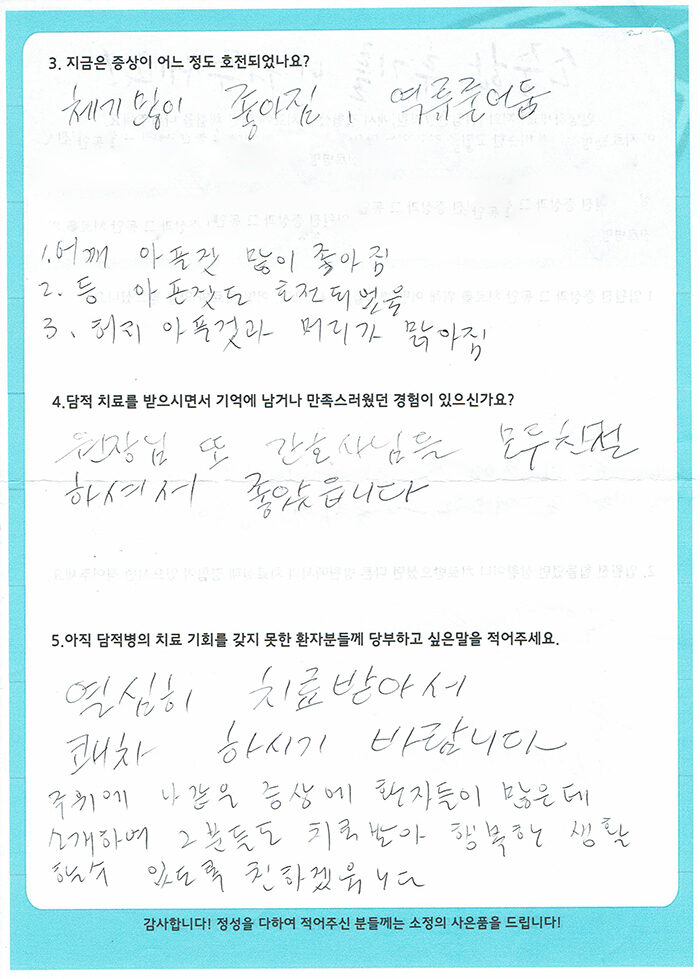 3. 지금은 증상이 어느 정도 호전되었나요?
체기 많이 좋아짐 역류줄어듬
1. 어깨 아픈것 많이 좋아짐
2. 등 아픈것도 호전되었음
3. 허리 아픈것과 머리가 맑아짐
4.담적 치료를 받으시면서 기억에 남거나 만족스러웠던 경험이 있으신가요?
원장님 또 간호사님들 모두친절
하셔서 좋았읍니다
5.아직 담적병의 치료 기회를 갖지 못한 환자분들께 당부하고 싶은말을 적어주세요.
열심히 치료받아서
쾌차 하시기 바랍니다
주위에 나같은 증상에 환자들이 많은데
소개하여 그분들도 치료받아 행복한 생활
할수 있도록 하겠읍니다
감사합니다! 정성을 다하여 적어주신 분들께는 소정의 사은품을 드립니다!